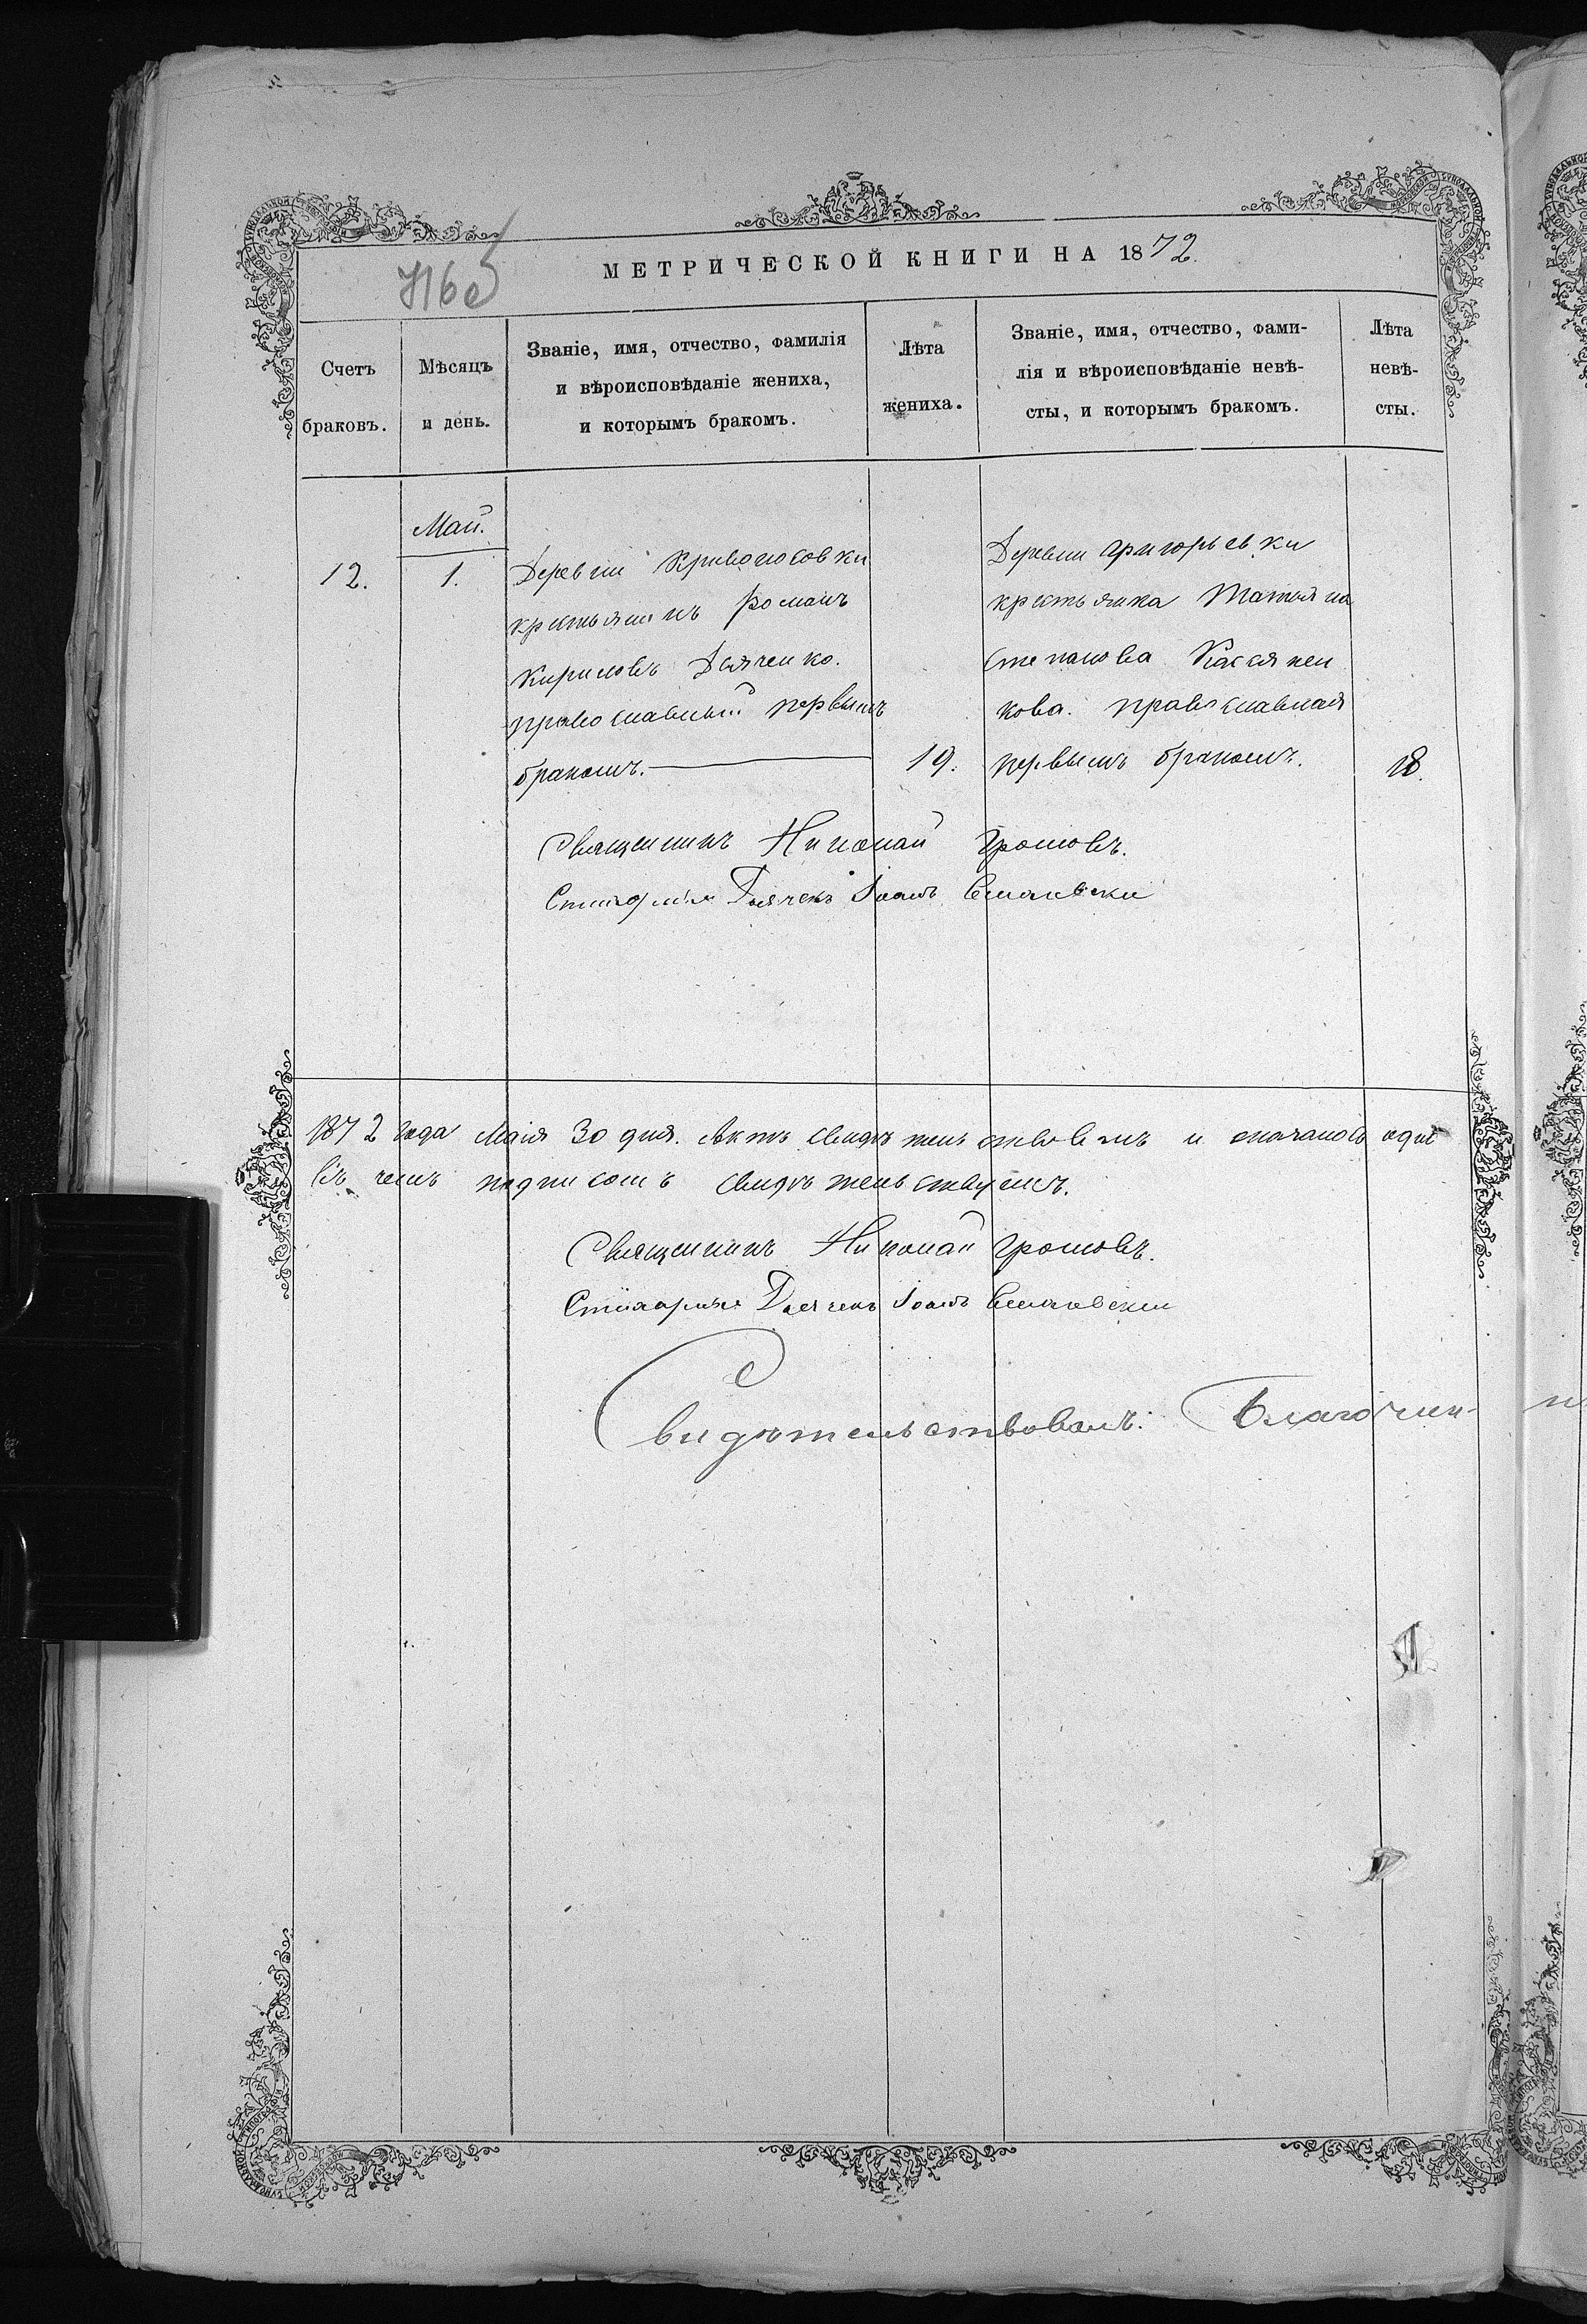 МЕТРИЧЕСКОЙ КНИГИ НА 1872.
Счетъ браковъ.
Мѣсяцъ и день.
Званіе, имя, отчество, фамилія
и вѣроисповѣданіе жениха,
и которымъ бракомъ.
Лѣта жениха.
Званіе, имя, отчество, фами-
лія и вѣроисповѣданіе невѣ-
сты, и которымъ бракомъ.
Лѣта невѣ-
сты.
Май.
12.
1.
Деревни Кривоносовки
крестьянинъ Романъ
Кириловъ Дяченко.
православный первымъ
бракомъ.
19.
Деревни Григорьевки
крестьянка Татьяна
Степанова Касьянен
кова. православная
первымъ бракомъ.
18.
Священникъ Николай Громовъ.
Дьячекъ Іоаннъ
1872 года Маія 30 дня. Актъ свидѣтельствованъ и
въ чемъ подписомъ свидѣтельствуемъ.
Священникъ Николай Громовъ.
Дьячекъ Іоаннъ
Свидѣтельствовалъ: Благочин-